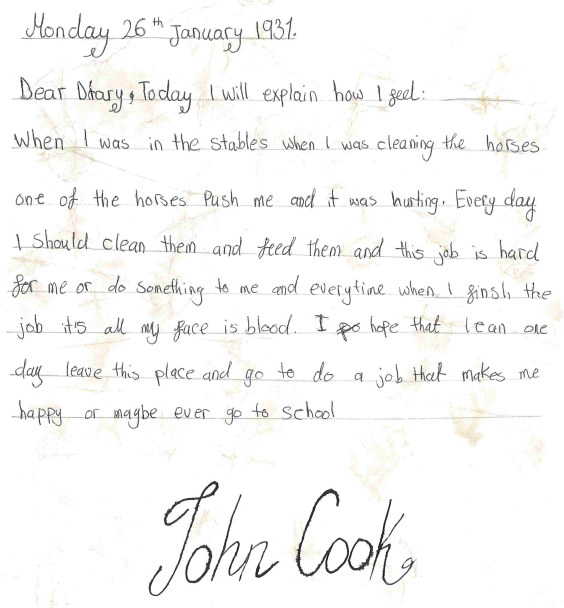 Monday 26th January 1931.
Dear Diary, Today I will explain how I feel:
When I was in the stables when I was cleaning the horses
one of the horses Push me and it was hurting. Every day
I Should clean them and feed them and this job is hard
for me or do something to me and everytime when I finsh the
job it's all my face is blood. I hope that I can one
day leave this place and go to do a job that makes me
happy or maybe ever go to school
John Cook